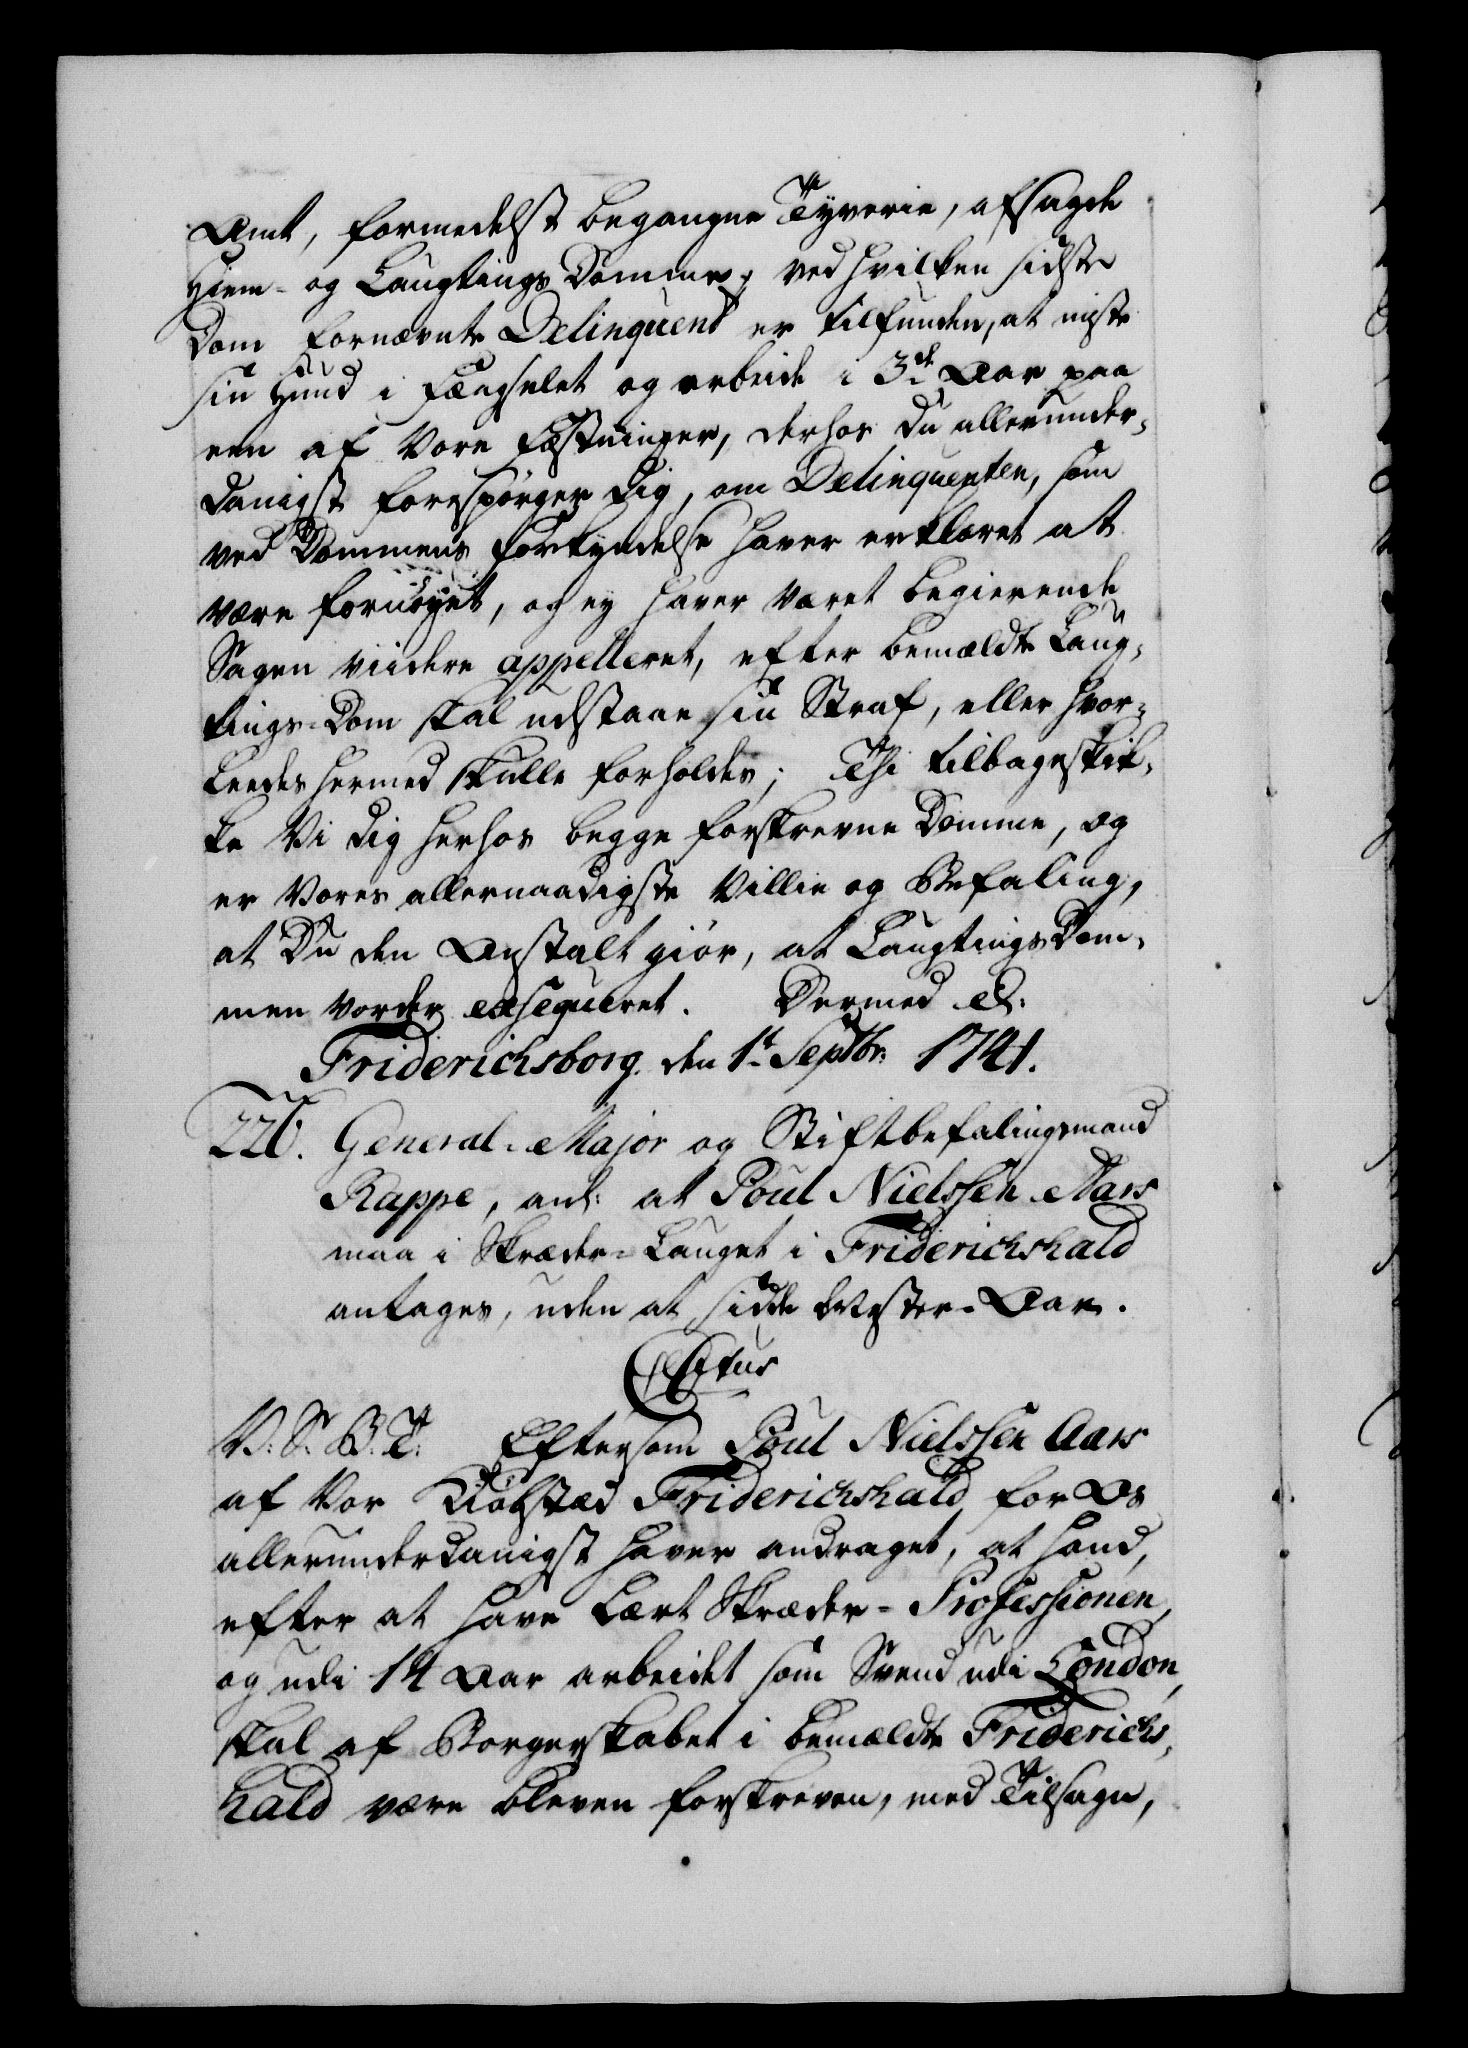 Amt, formedelst begangne Tyverie, afsagde
Hiem- og Laugtings Domme, ved hvilken sidste
Dom fornævnte Delinquent er tilfunden, at miste
sin Hud i Fængselet og arbeide i 3de Aar paa
een af Vore Fæstninger, derhos Du allerunder-
danigst forespørger dig, om Delinquenten, som
ved Dommens Forkyndelse haver erklæret at
være fornøyet, og ey haver været begierende
Sagen viidere appelleret, efter bemældte Laug-
tings-Dom skal udstaae sin Straf, eller hvor-
leedes hermed skulle forholdes; Thi tilbageskik-
ke Vi dig herhos begge forskrevne Domme, og
er Vores allernaadigste Villie og Befaling,
at Du den Anstalt giør, at Laugtings Dom-
men vorder exsequeret. Dermed &.
Friderichsborg den 1t Septbr: 1741.
226. General-Major og Stiftbefalingsmand
Rappe, anl: at Poul Nielssen Aars
maa i Skræder-Lauget i Friderichshald
antages, uden at sidde Mester-Aar.
Citus
V. S. B. T. Eftersom Poul Nielssen Aars
af Vor Kiøbstæd Friderichshald for Os
allerunderdanigst haver andraget, at hand,
efter at have lært Skræder-Professionen,
og udi 14 Aar arbeidet som Svend udi London,
skal af Borgerskabet i bemældte Friderichs-
hald være bleven forskreven, med Tilsagn,